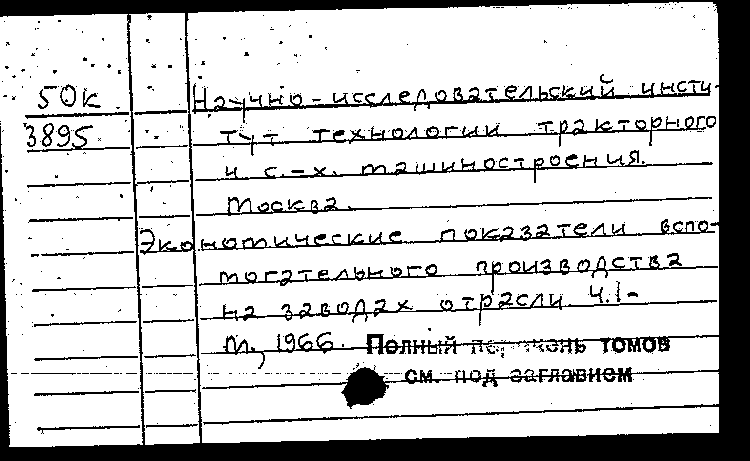 50к
3895
Научно-исследовательский инсти-
тут технологии тракторного
и с.-х. машиностроения.
Москва.
Экономические показатели вспо-
могательного производства
на заводах отрасли. Ч.1-
М., 1966.
Полный перечень томов
см. под заглавием